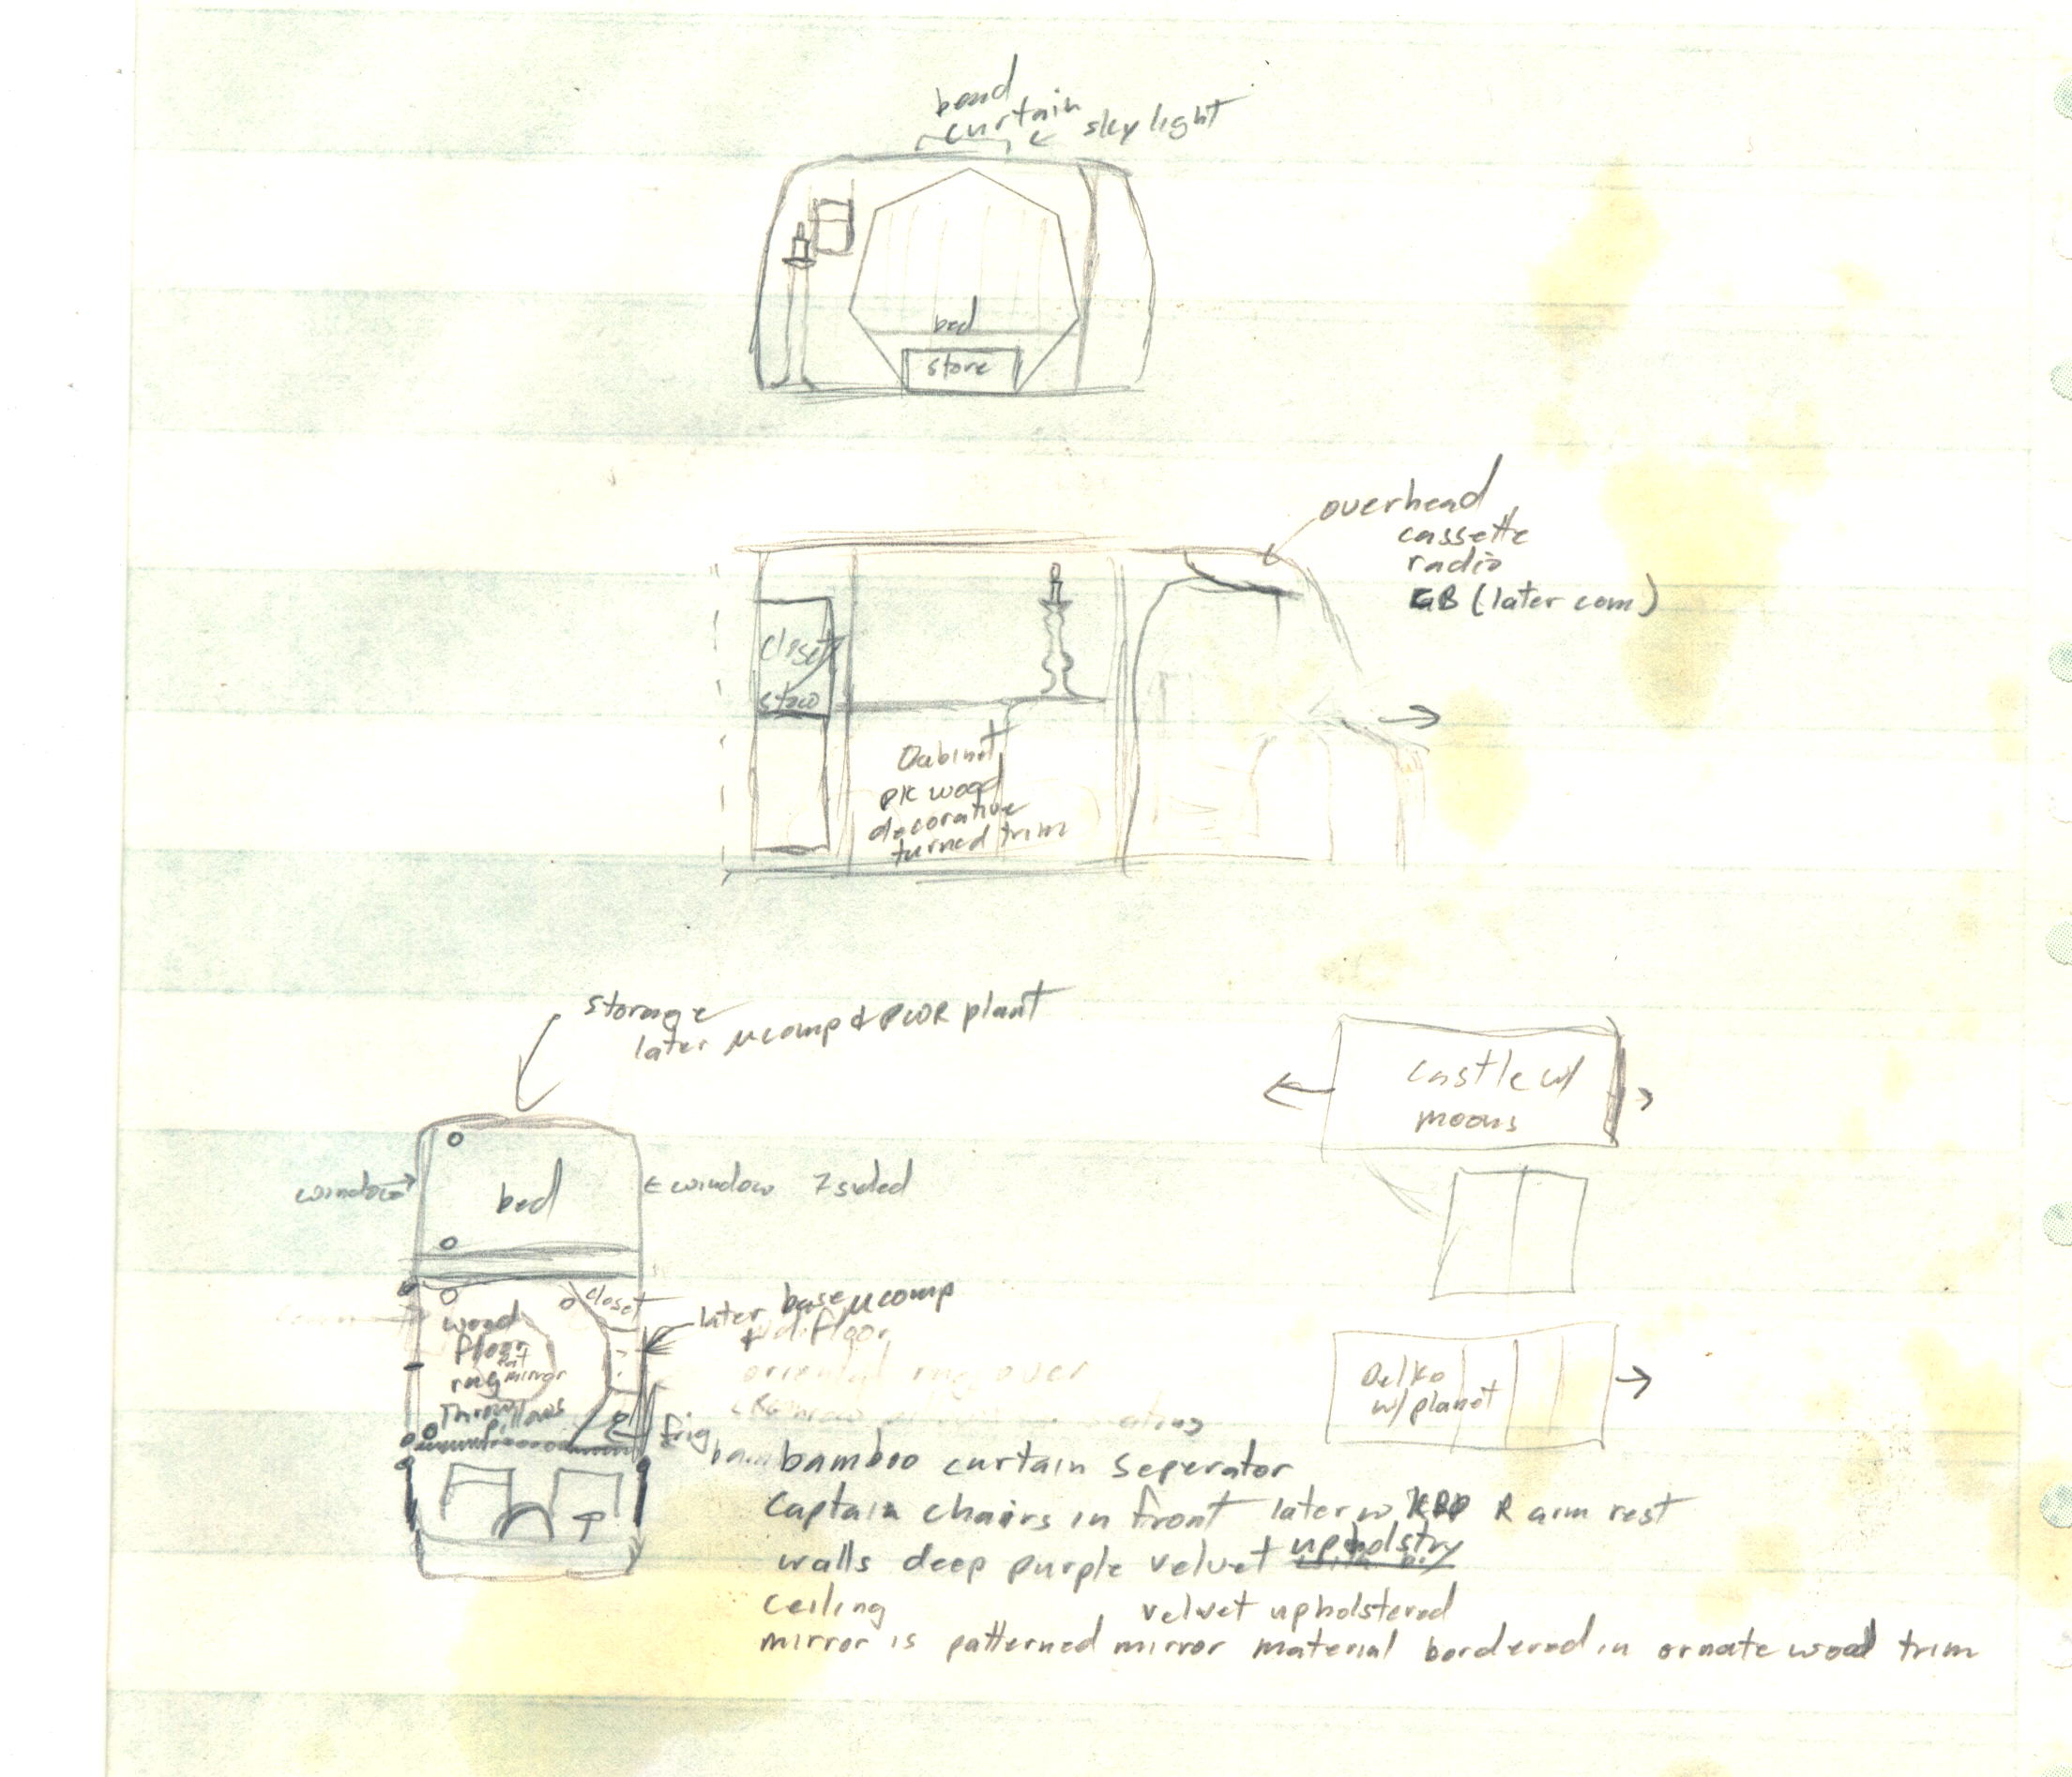 bead
curtain
skylight
bed
store
overhead
cassette
radio
CB (later com)
closet
stow
Cabinet
pk wood
decorative
turned trim
storage
later μcomp & PWR plant
castle w/
moons
window
bed
window 7 sided
closet
later base μcomp
wood
floor
rug
mirror
Throw
pillows
frig
oriental rug over
w/planet
bamboo curtain seperator
captain chairs in front later w KBD R arm rest
walls deep purple velvet upholstry
ceiling velvet upholstered
mirror is patterned mirror material bordered in ornate wood trim